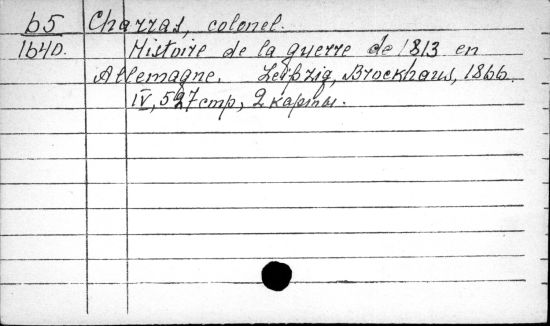 65 Charras, colonel.
1640. Histoire de la guerre de 1813 en
Allemagne. Leipzig, Brockhaus, 1866.
IV, 527 стр., 2 карты.